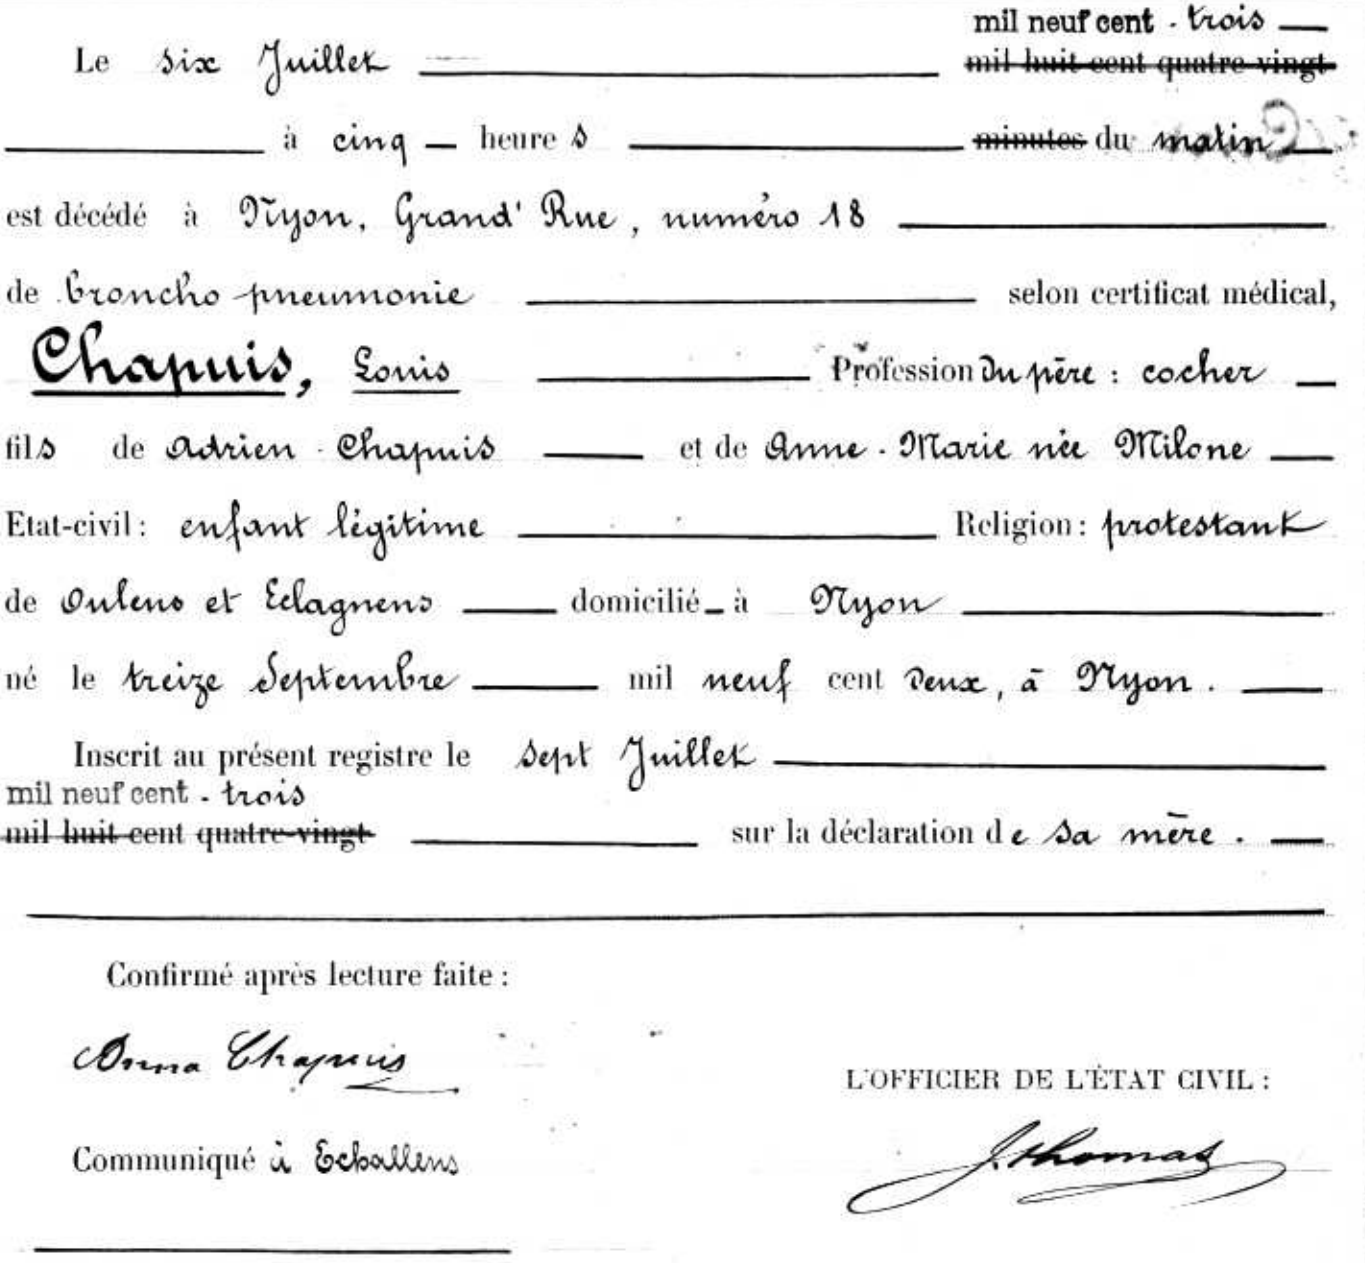 mil neuf cent - trois
Le six Juillet mil huit cent quatre-vingt
à cinq heures minutes du matin
est décédé à Nyon, Grand' Rue, numéro 18
de broncho-pneumonie selon certificat médical,
Chapuis, Louis Profession du père : cocher
fils de Adrien - Chapuis et de Anne - Marie née Milone
Etat-civil : enfant légitime Religion : protestant
de Oulens et Eclagnens domicilié à Nyon
né le treize Septembre mil neuf cent deux, à Nyon.
Inscrit au présent registre le sept Juillet
mil neuf cent - trois
mil huit cent quatre-vingt sur la déclaration de sa mère.
Confirmé après lecture faite :
Anna Chapuis
L'OFFICIER DE L'ÉTAT CIVIL :
Communiqué à Echallens
J. Thomas